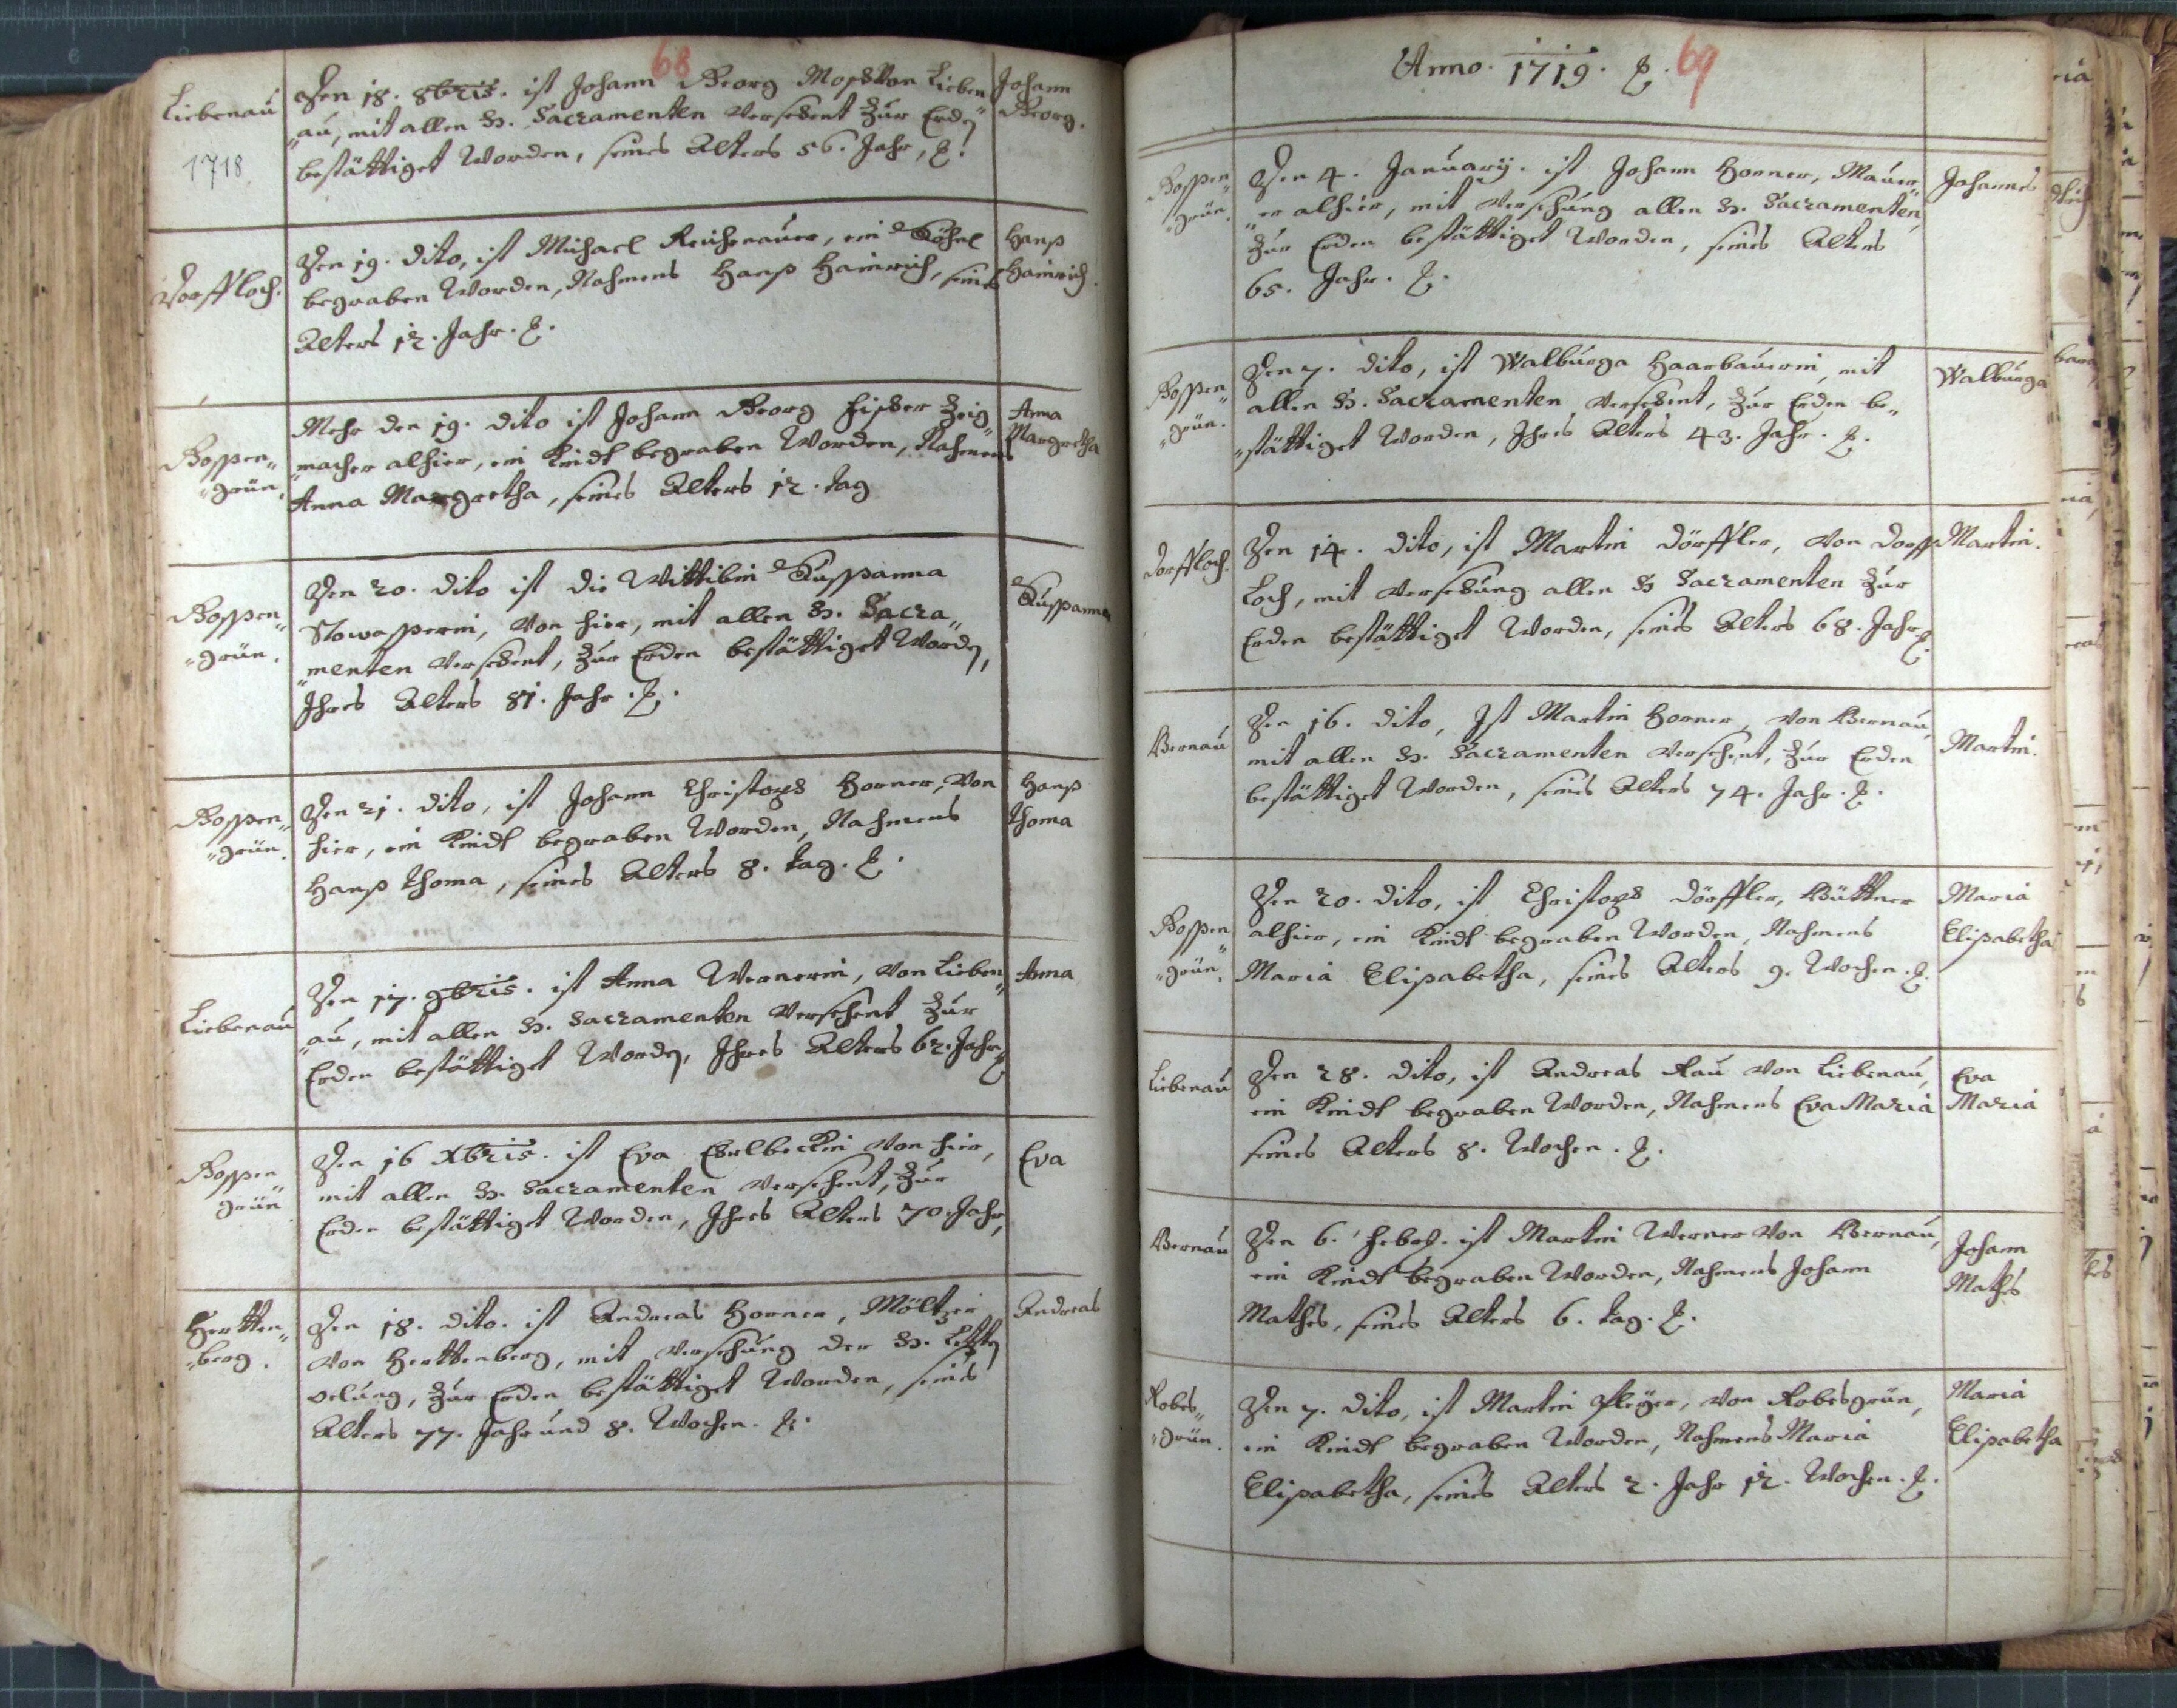 68
Liebenau
1718
Den 18. 8bris. ist Johann Georg Moßs Von Lieben„
„au, mit allen H. Sacramenten Versehent Zur Erden
bestättiget Worden, seines Alters 56. Jahr,
Johann
Georg.
Dorffloch.
Den 19. dito, ist Michael Reichenauer, ein Söhnl
begraben Worden, Nahmens Hanß Hainrich, seines
Alters 12. Jahr.
Hanß
Hainrich.
Boppen„
„grün.
Mehr den 19. dito ist Johann Georg Fischer Zeig„
„macher alhier, ein Kindt begraben Worden, Nahmens
Anna Margretha, seines Alters 12. tag
Anna
Margretha
Boppen„
„grün.
Den 20. dito ist die Wittibin Sußanna
Stowasserin, Von hier, mit allen H. Sacra„
„menten Versehent, Zur Erden bestättiget Worden,
Ihres Alters 81. Jahr.
Sußanna
Boppen„
„grün.
Den 21. dito, ist Johann Christoph Horner, Von
hier, ein Kindt begraben Worden, Nahmens
Hanß Thoma, seines Alters 8. tag.
Hanß
Thoma
Liebenau
Den 17. 9bris. ist Anna Wernerin, Von Lieben„
„au, mit allen H. Sacramenten Versehent Zur
Erden bestättiget Worden, Ihres Alters 62. Jahr
Anna
Boppen„
grün
Den 16 Xbris. ist Eva Von hier,
mit allen H. Sacramenten Versehent, Zur
Erden bestättiget Worden, Ihres Alters 70. Jahr,
Eva
Hertten„
„berg.
Den 18. dito. ist Andreas Horner, Möltzer
Von Herttenberg, mit Versehung der H. Letzten
oelung, Zur Erden bestättiget Worden, seines
Alters 77. Jahr und 8. Wochen.
Andreas
Anno. 1719. 69
Boppen„
„grün.
Den 4. January. ist Johann Horner, Maur„
„er alhier, mit Versehung allen H. Sacramenten,
Zur Erden bestättiget Worden, seines Alters
65. Jahr.
Johannes
Boppen„
„grün.
Den 7. dito, ist Walburga Haarbauerin, mit
allen H. Sacramenten Versehent, Zur Erden be„
„stättiget Worden, Ihres Alters 43. Jahr.
Walburga
Dorffloch.
Den 14. dito, ist Martin Dörffler, Von Dorff
Loch, mit Versehung allen H Sacramenten Zur
Erden bestättiget Worden, seines Alters 68. Jahr
Martin.
Bernau
Den 16. dito, Ist Martin Horner, Von Bernau,
mit allen H. Sacramenten Versehent, Zur Erden
bestättiget Worden, seines Alters 74. Jahr.
Martin.
Boppen„
„grün.
Den 20. dito, ist Christoph Dörffler, Büttner
alhier, ein Kindt begraben Worden, Nahmens
Maria Elisabetha, seines Alters 9. Wochen.
Maria
Elisabetha
Liebenau
Den 28. dito, ist Andreas Rau Von Liebenau,
ein Kindt begraben Worden, Nahmens Eva Maria
seines Alters 8. Wochen.
Eva
Maria
Bernau
Den 6. Febr. ist Martin Werner Von Bernau,
ein Kindt begraben Worden, Nahmens Johann
Mathes, seines Alters 6. tag.
Johann
Mathes
Robes„
„grün.
Den 7. dito, ist Martin Pleyer, Von Robesgrün,
ein Kindt begraben Worden, Nahmens Maria
Elisabetha, seines Alters 2. Jahr 12. Wochen.
Maria
Elisabetha